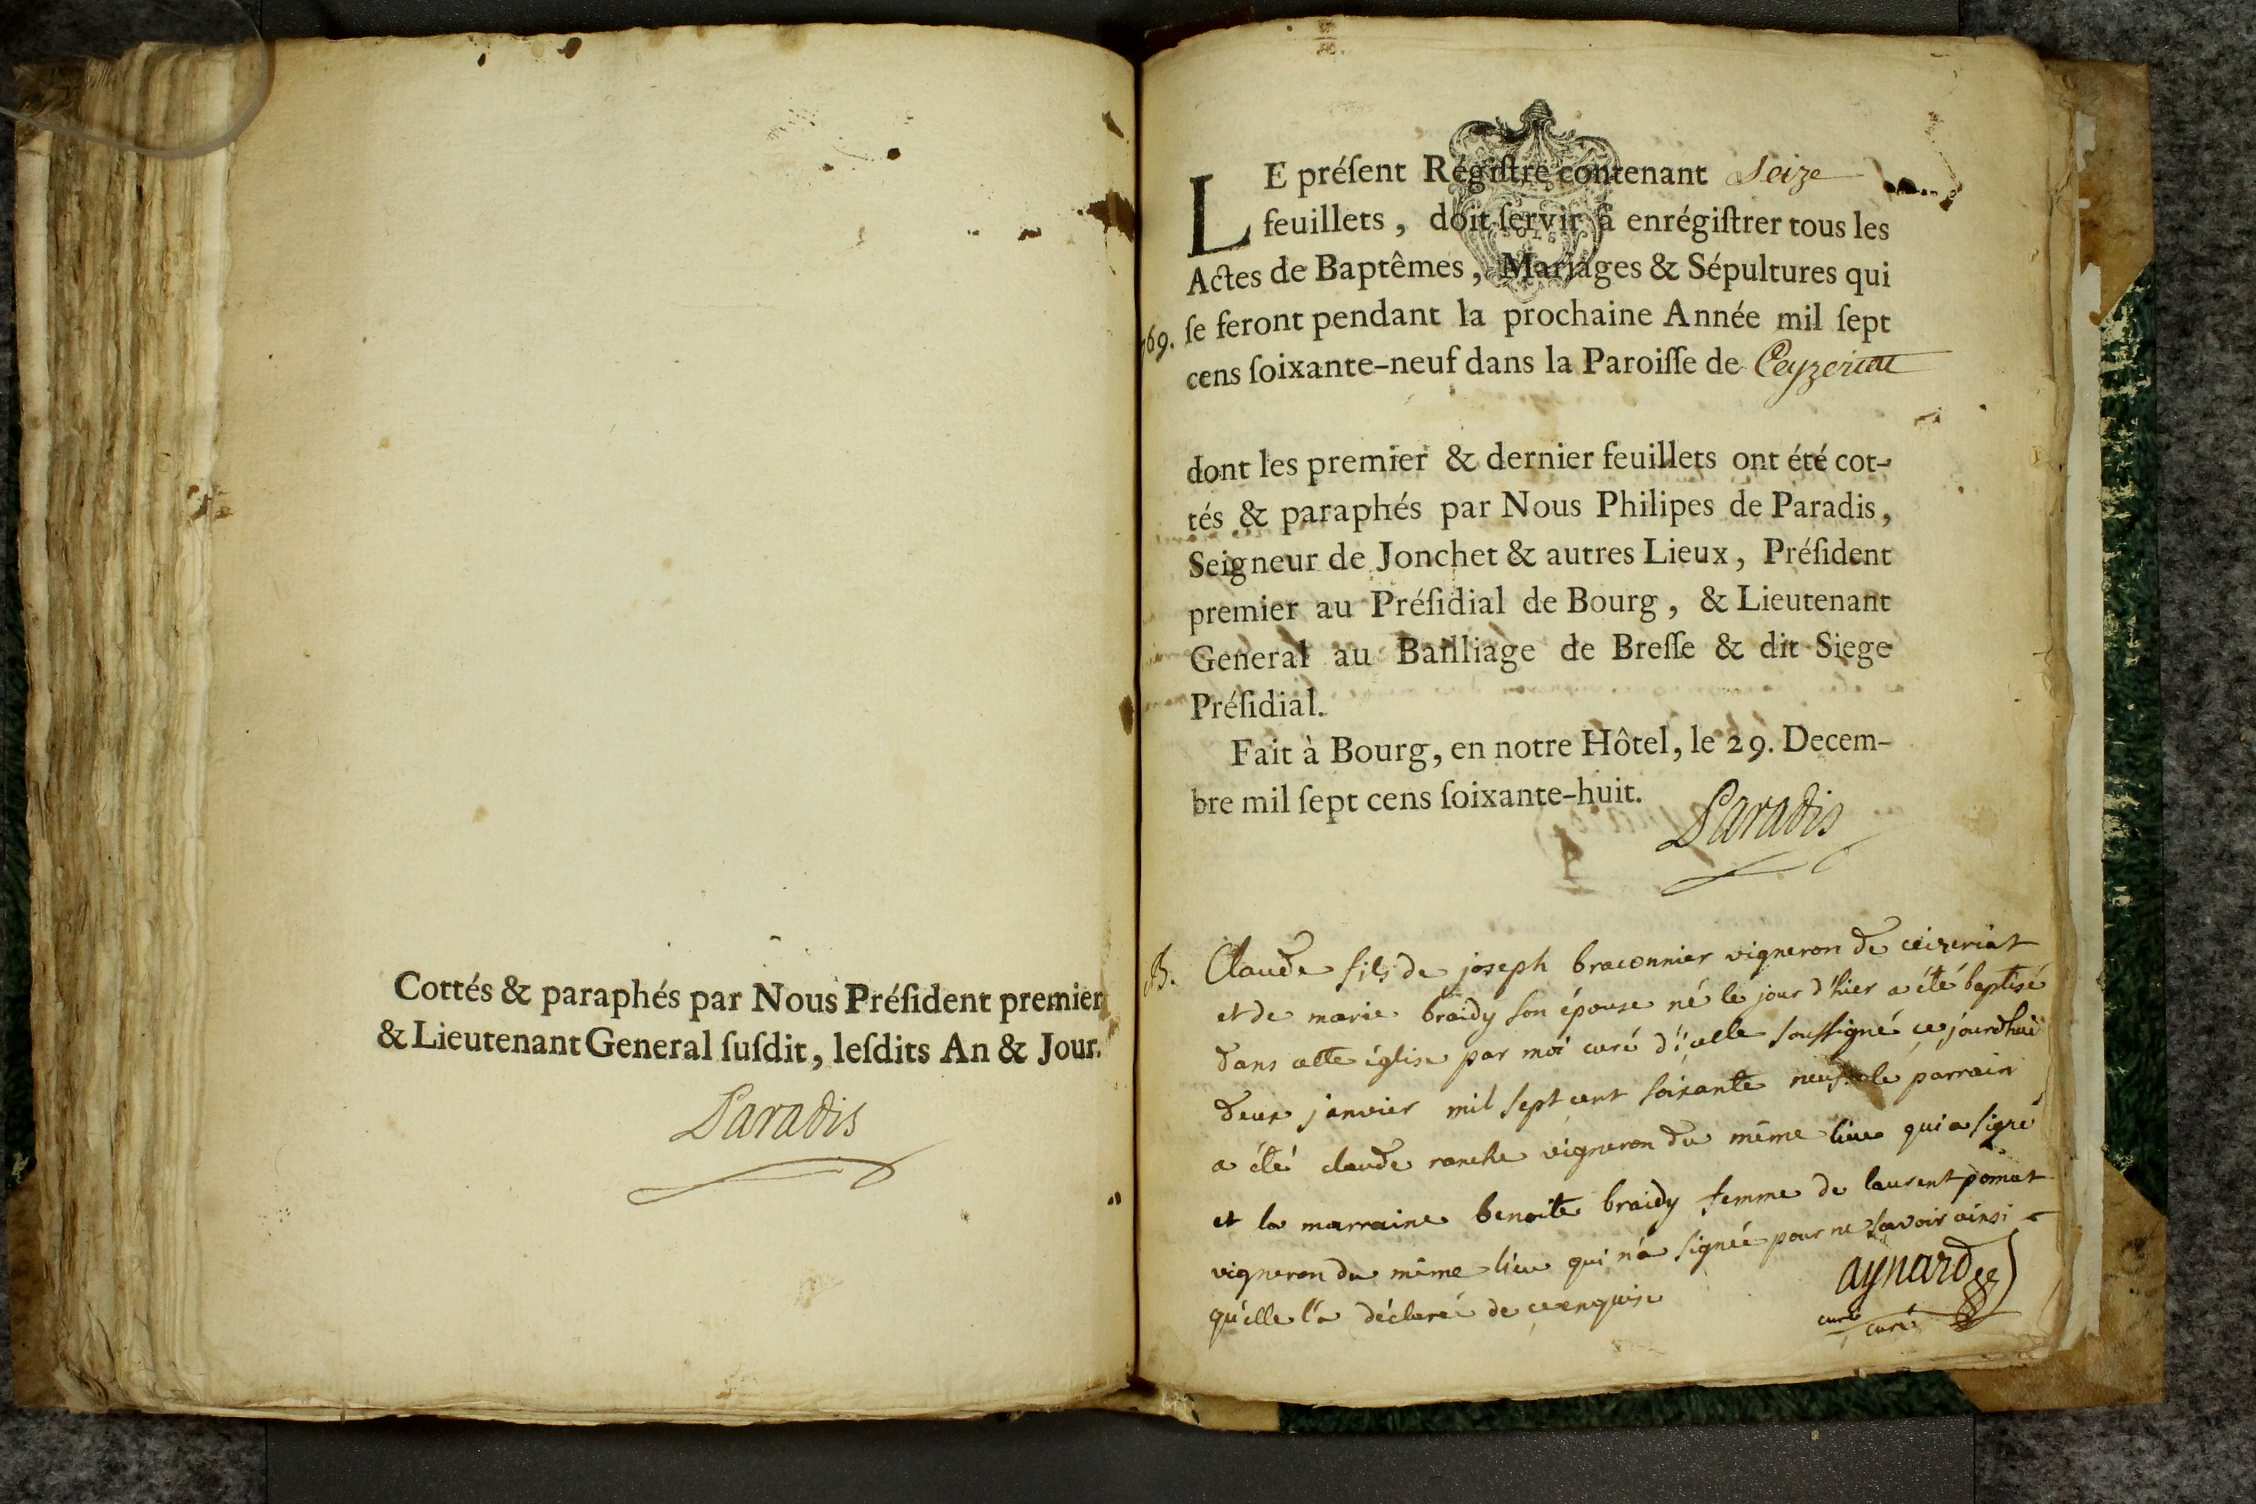 Cottés & paraphés par Nous Préſident premier
& Lieutenant General ſuſdit, leſdits An & Jour.
Paradis
LE préſent Régiſtre contenant Seize
feuillets, doit ſervir à enrégiſtrer tous les
Actes de Baptêmes, Mariages & Sépultures qui
69. ſe feront pendant la prochaine Année mil ſept
cens ſoixante-neuf dans la Paroiſſe de Ceyzeriat
dont les premier & dernier feuillets ont été cot-
tés & paraphés par Nous Philipes de Paradis,
Seigneur de Jonchet & autres Lieux, Préſident
premier au Préſidial de Bourg, & Lieutenant
General au Bailliage de Breſſe & dit Siege
Préſidial.
Fait à Bourg, en notre Hôtel, le 29. Decem-
bre mil ſept cens ſoixante-huit.
Paradis
B. Claude fils de joseph braconnier vigneron de ceizeriat
et de marie braidy son épouse né le jour d'hier a été baptisé
dans cette église par moi curé d'icelle soussigné ce jourdhui
deux janvier mil sept cent soixante neuf le parrain
a été claude ranche vigneron du même lieu qui a signé
et la marraine benoite braidy femme de laurent pomat
vigneron du même lieu qui n'a signée pour ne savoir ainsi
qu'elle l'a déclaré de ce enquise
aynard
curé
curé